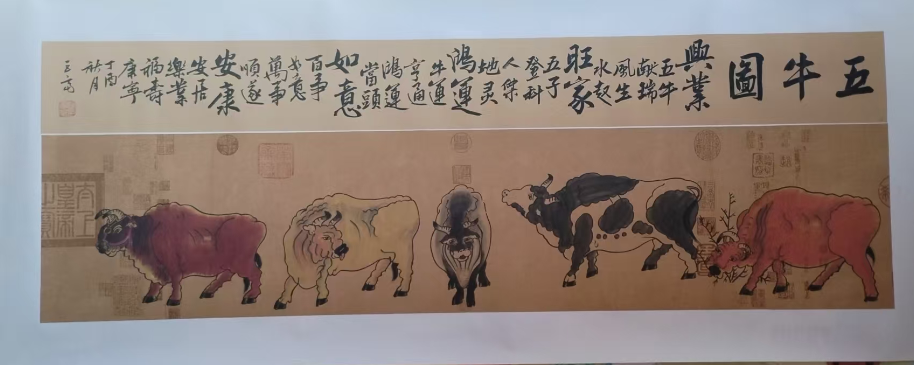 五牛圖
興業
五牛
獻瑞
風生
水起
旺家
五子
登科
人傑
地灵
鴻運
牛運
亨通
鴻運
當頭
如意
百事
如意
萬事
順遂
安康
安居
樂業
福壽
康寧
丁酉
秋月
太上
皇帝
之寶